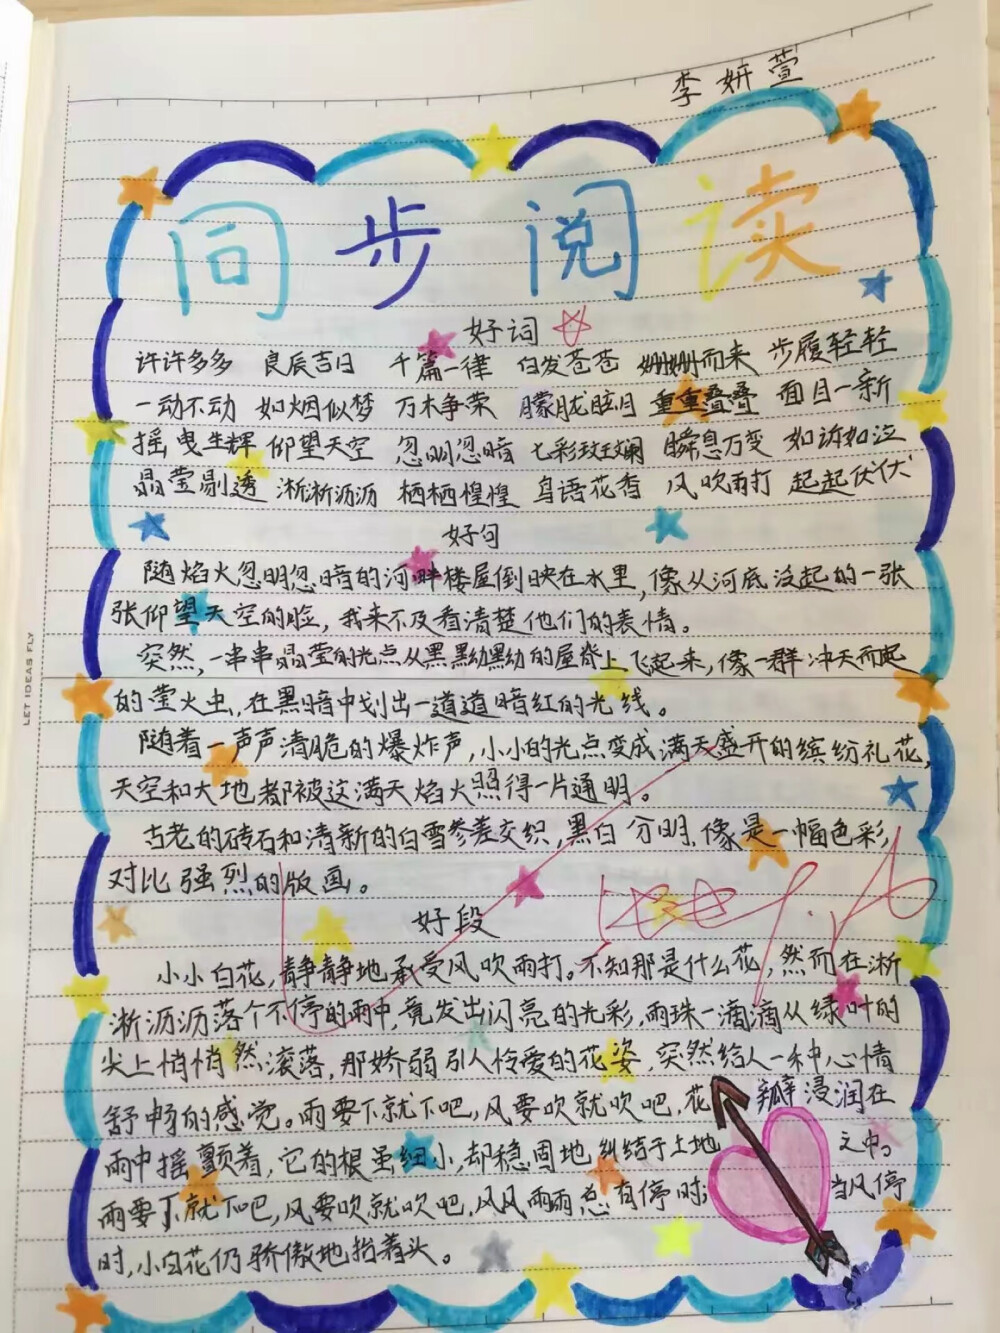 李妍萱
同步阅读
好词
许许多多 良辰吉日 千篇一律 白发苍苍 姗姗而来 步履轻轻
一动不动 如烟似梦 万木争荣 朦胧眩目 重重叠叠 面目一新
摇曳生辉 仰望天空 忽明忽暗 七彩斑斓 瞬息万变 如诉如泣
晶莹剔透 淅淅沥沥 栖栖惶惶 鸟语花香 风吹雨打 起起伏伏
好句
随焰火忽明忽暗的河畔楼屋倒映在水里,像从河底浮起的一张
张仰望天空的脸,我来不及看清楚他们的表情。
突然,一串串晶莹的光点从黑黝黝的屋脊上飞起来,像一群冲天而起
的萤火虫,在黑暗中划出一道道暗红的光线。
随着一声声清脆的爆炸声,小小的光点变成满天盛开的缤纷礼花,
天空和大地都被这满天焰火照得一片通明。
古老的砖石和清新的白雪参差交织,黑白分明,像是一幅色彩
对比强烈的版画。
好段
小小白花,静静地承受风吹雨打。不知那是什么花,然而在淅
淅沥沥落个不停的雨中,竟发出闪亮的光彩,雨珠一滴滴从绿叶的
尖上悄悄然滚落,那娇弱引人怜爱的花姿,突然给人一种心情
舒畅的感觉。雨要下就下吧,风要吹就吹吧,花瓣浸润在
雨中摇颤着,它的根虽细小,却稳固地纠结于土地之中。
雨要下就下吧,风要吹就吹吧,风风雨雨总有停时,当风停
时,小白花仍骄傲地抬着头。
LET IDEAS FLY